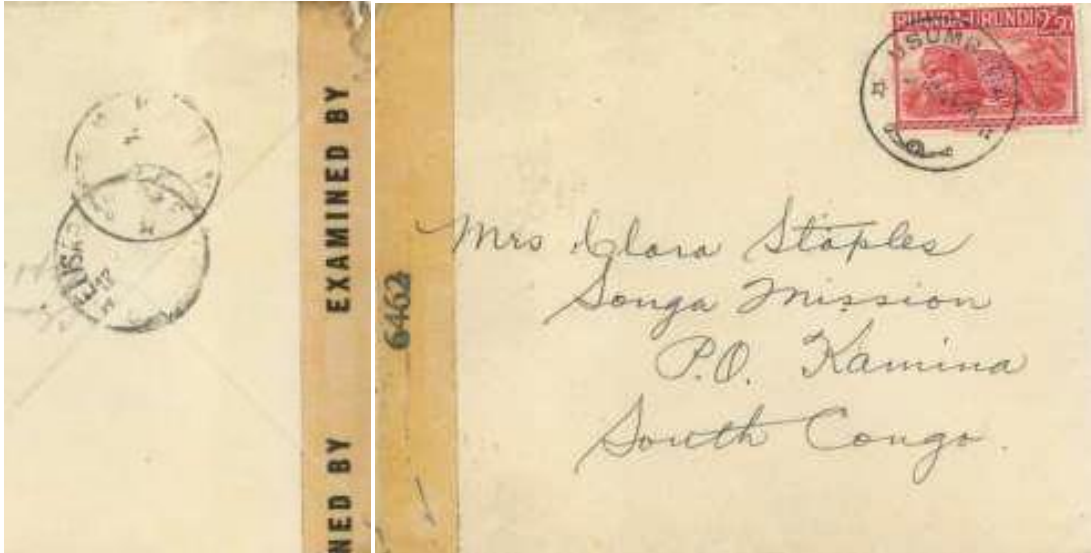 EXAMINED BY
NED BY
6462
RUANDA URUNDI
USUMB
Mrs Clara Staples
Songa Mission
P.O. Kamina
South Congo.